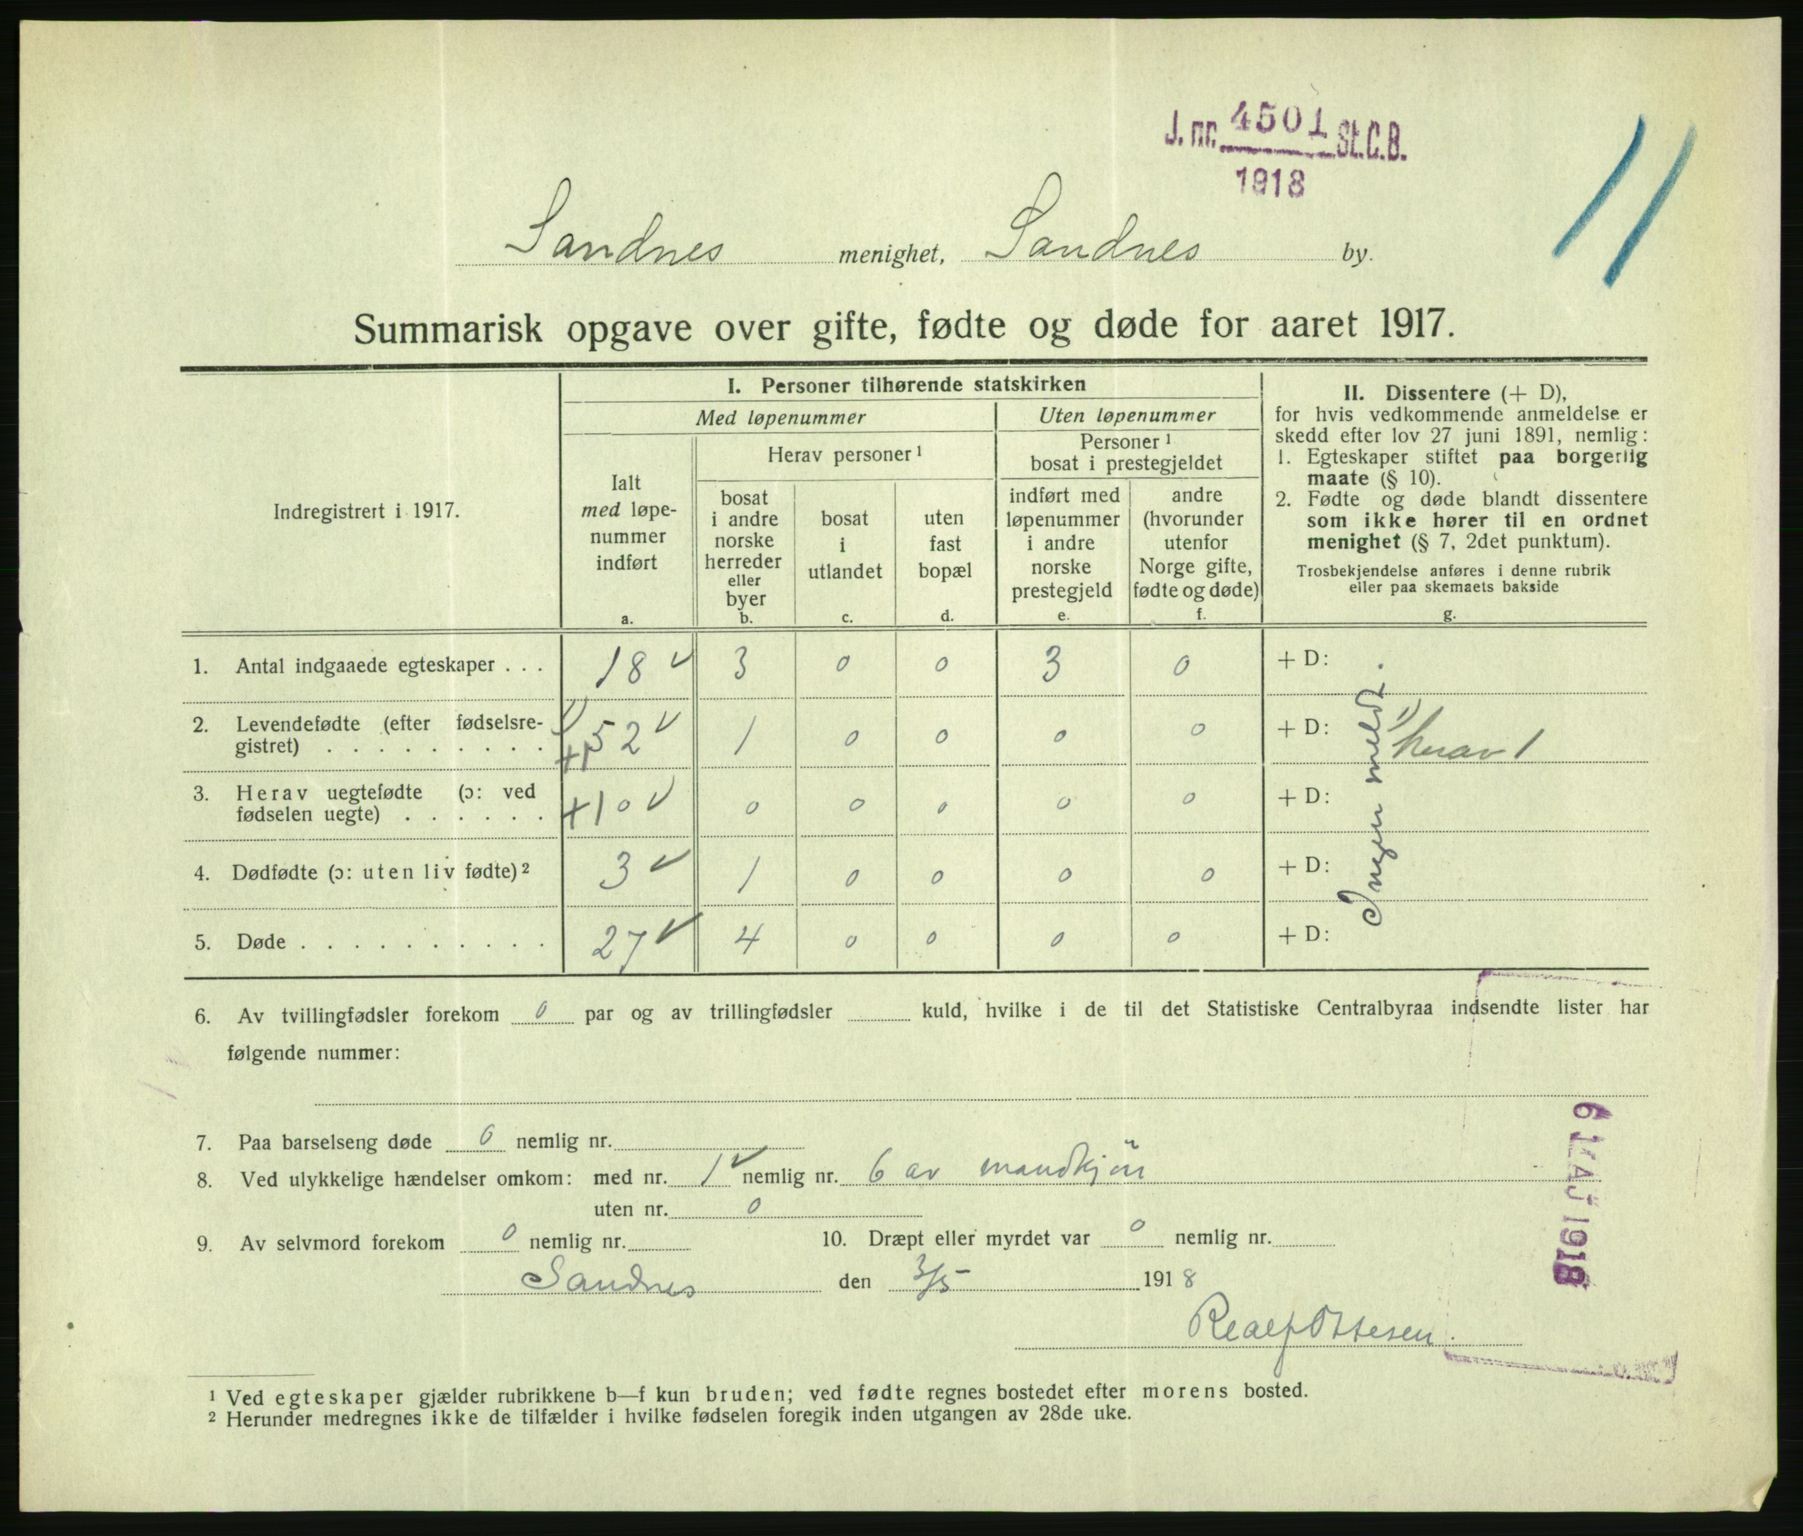 J. nr. 4501 St. C. B.
1918
11
Sandnes menighet, Sandnes by.
Summarisk opgave over gifte, fødte og døde for aaret 1917.
Indregistrert i 1917.
I. Personer tilhørende statskirken
Med løpenummer
Uten løpenummer
Ialt
med løpe-
nummer
indført
a.
Herav personer ¹
bosat
i andre
norske
herreder
eller
byer
b.
bosat
i
utlandet
c.
uten
fast
bopæl
d.
Personer ¹
bosat i prestegjeldet
indført med
løpenummer
i andre
norske
prestegjeld
e.
andre
(hvorunder
utenfor
Norge gifte,
fødte og døde)
f.
II. Dissentere (+ D),
for hvis vedkommende anmeldelse er
skedd efter lov 27 juni 1891, nemlig:
1. Egteskaper stiftet paa borgerlig
maate (§ 10).
2. Fødte og døde blandt dissentere
som ikke hører til en ordnet
menighet (§ 7, 2det punktum).
Trosbekjendelse anføres i denne rubrik
eller paa skemaets bakside
g.
1. Antal indgaaede egteskaper . . . 18 ✓ 3 0 0 3 0 + D:
2. Levendefødte (efter fødselsre-
gistret) . . . . . . . . . ¹) +1 52 ✓ 1 0 0 0 0 + D: ¹) herav 1
3. Herav uegtefødte (ɔ: ved
fødselen uegte) . . . . . . +1 0 ✓ 0 0 0 0 0 + D:
4. Dødfødte (ɔ: uten liv fødte) ² 3 ✓ 1 0 0 0 0 + D:
5. Døde . . . . . . . . . . 27 ✓ 4 0 0 0 0 + D:
Ingen meldt.
6. Av tvillingfødsler forekom 0 par og av trillingfødsler kuld, hvilke i de til det Statistiske Centralbyraa indsendte lister har
følgende nummer:
7. Paa barselseng døde 0 nemlig nr.
8. Ved ulykkelige hændelser omkom: med nr. 1 ✓ nemlig nr. 6 av mandkjön
uten nr. 0
9. Av selvmord forekom 0 nemlig nr. 10. Dræpt eller myrdet var 0 nemlig nr.
Sandnes den 3/5 1918
Realf Ottesen.
6 MAJ 1918
¹ Ved egteskaper gjælder rubrikkene b—f kun bruden; ved fødte regnes bostedet efter morens bosted.
² Herunder medregnes ikke de tilfælder i hvilke fødselen foregik inden utgangen av 28de uke.